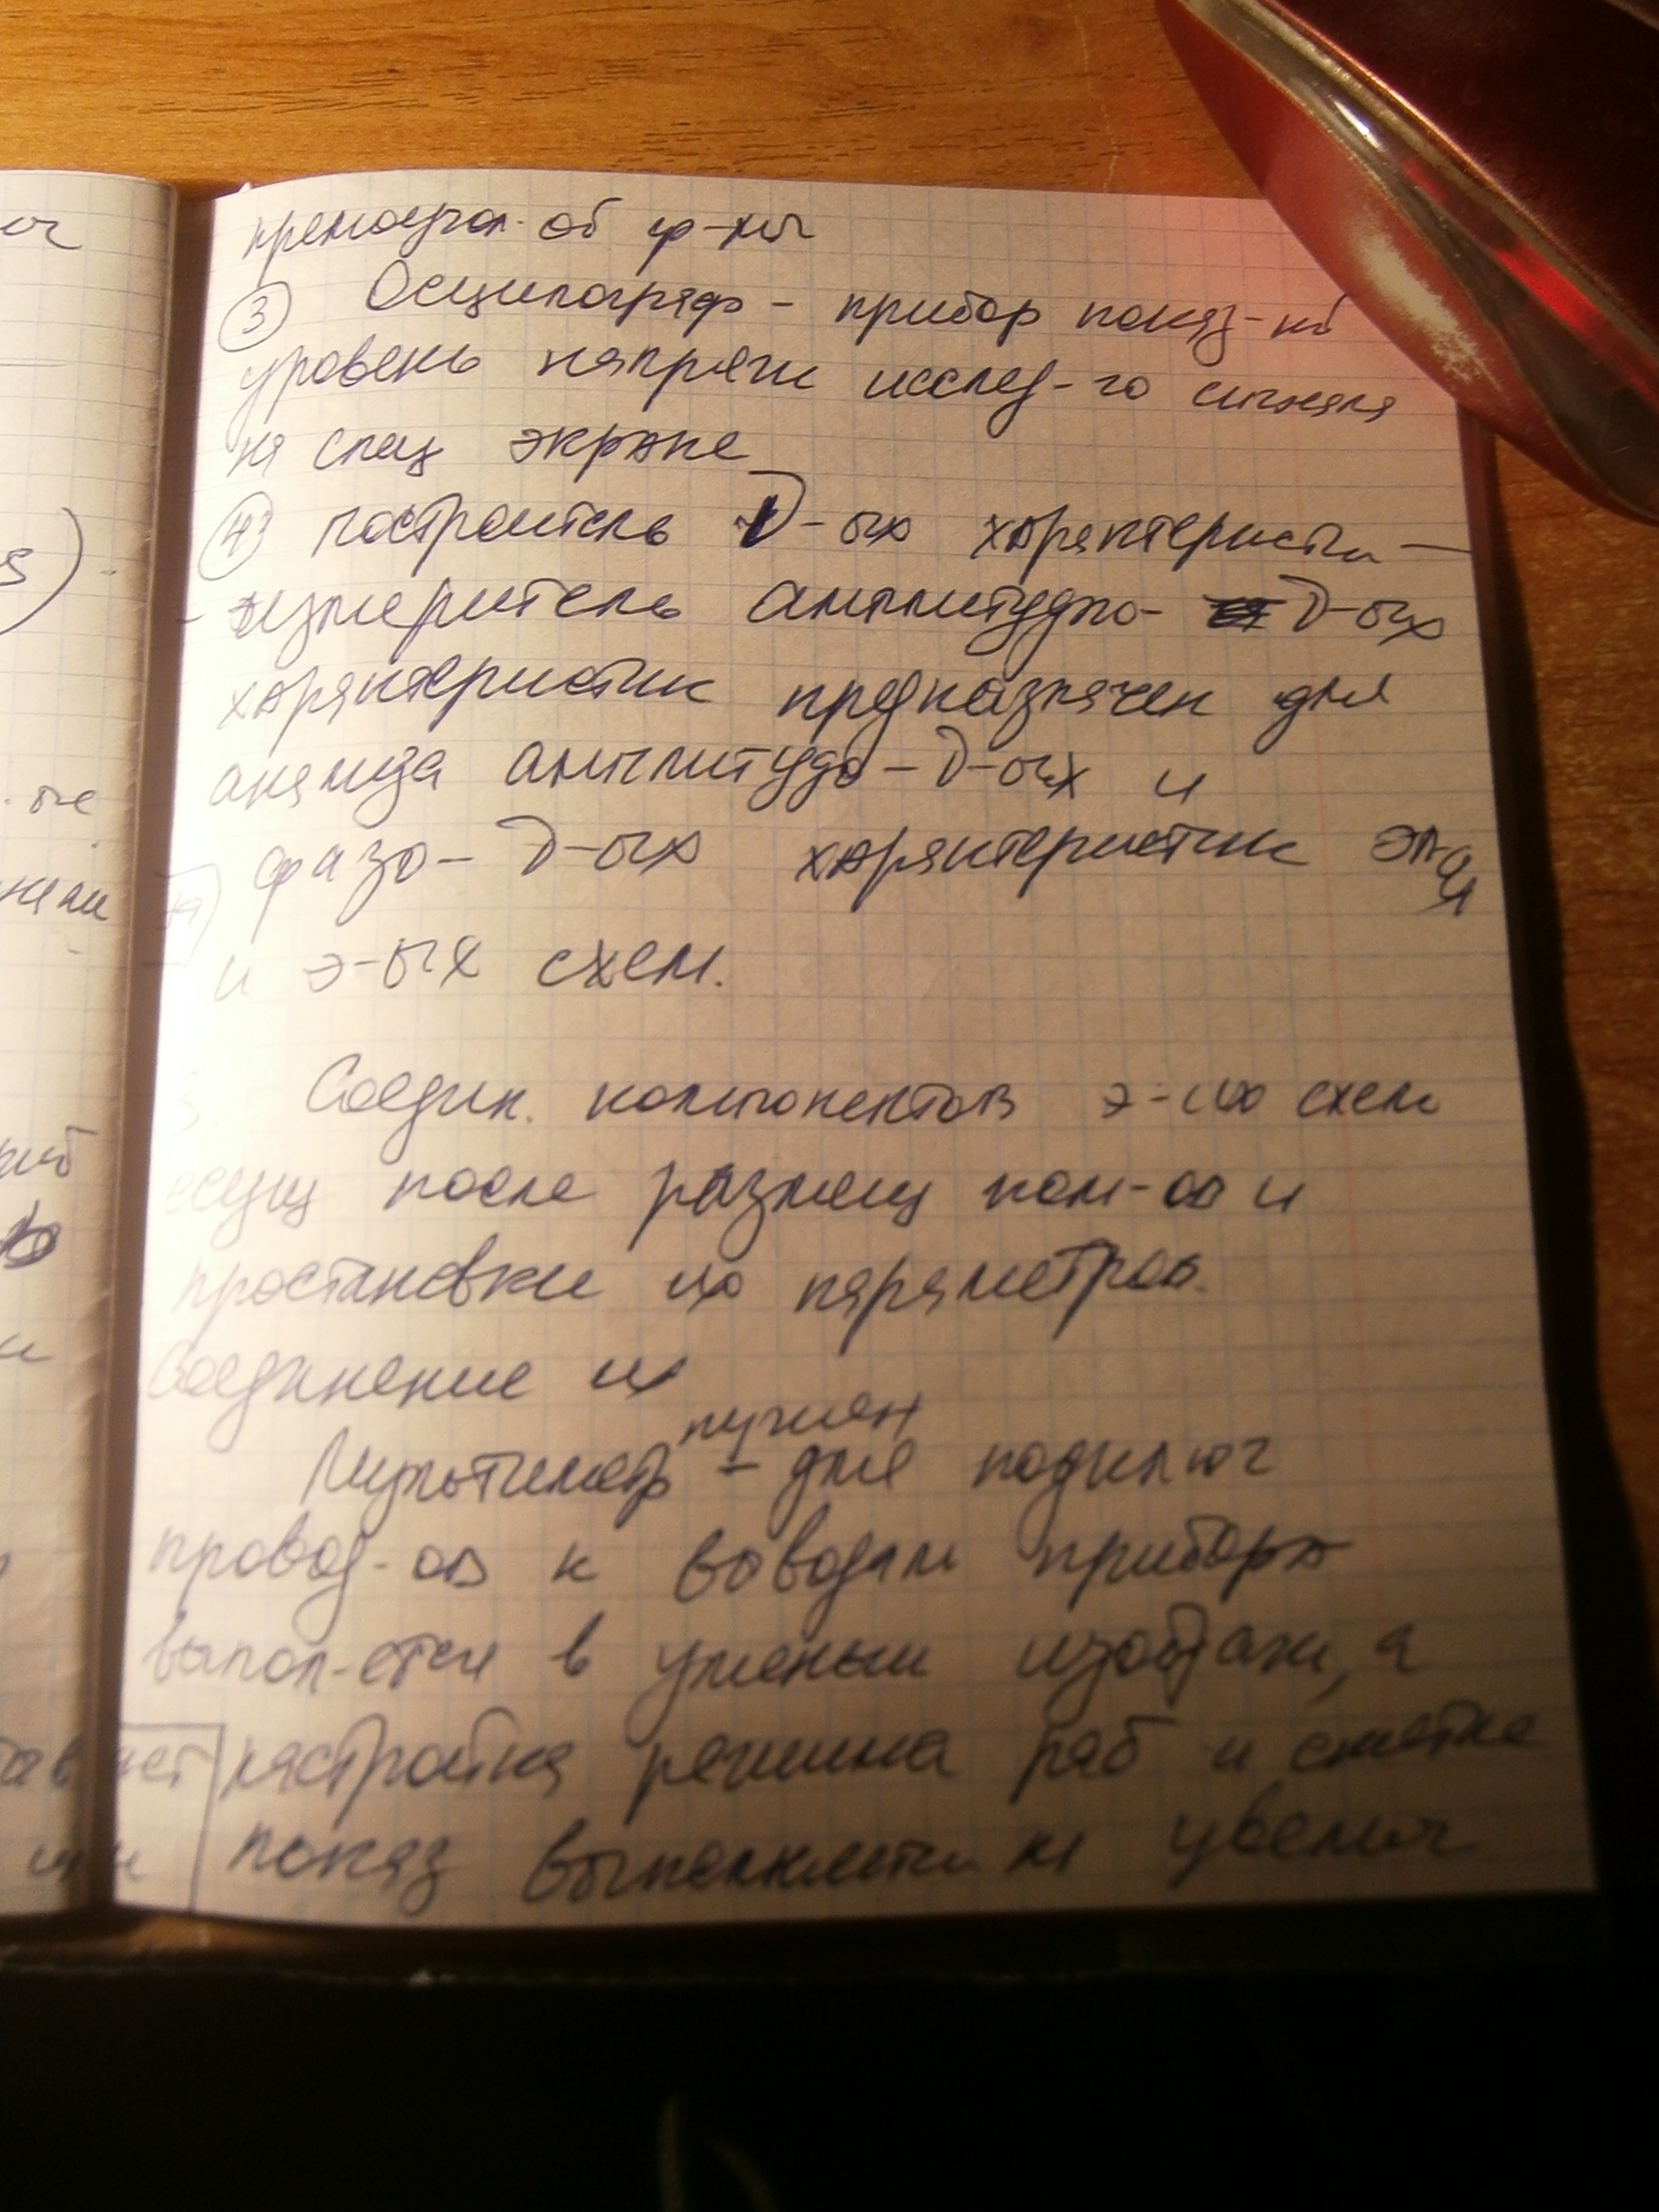 прямоугол. об ф-мы
③ Осцилограф - прибор показ-ий
уровень напряж исслед-го сигнала
на спец экране
④ построитель D-ых характеристи —
- измеритель амплитудно- D-ых
характеристик предназначен для
анализа амплитудо-D-ых и
фазо-D-ых характеристик
и э-ых схем.
Соедин. компонентов э-их схем
осущ после размещ ком-ов и
простановки их параметров.
Соединение их
нужен
Мультиметр - для подключ
провод-ов к выводам прибора
выпол-ется в уменьш изображ, а
настройка режима раб и снятие
показ выполняется на увелич